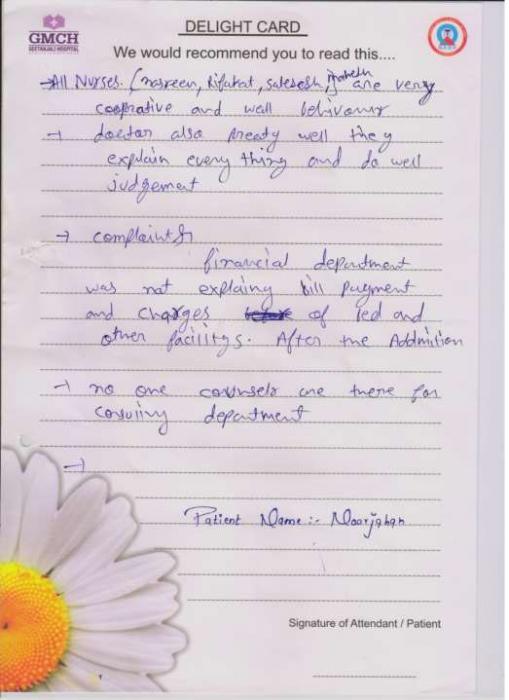 GMCH
GEETANJALI HOSPITAL
DELIGHT CARD
We would recommend you to read this....
→ All Nurses. (nasreen, Rifakat, Satesesh, mahesh) are very
cooprative and well behivour
→ doctor also preaty well they
explain every thing and do well
judgement
→ complaints
financial depertment
was not explaing bill payment
and charges of led and
other facilitys. After the Addmition
→ no one counselr are there for
depertment
→
Patient Name :- Noorjahan
Signature of Attendant / Patient